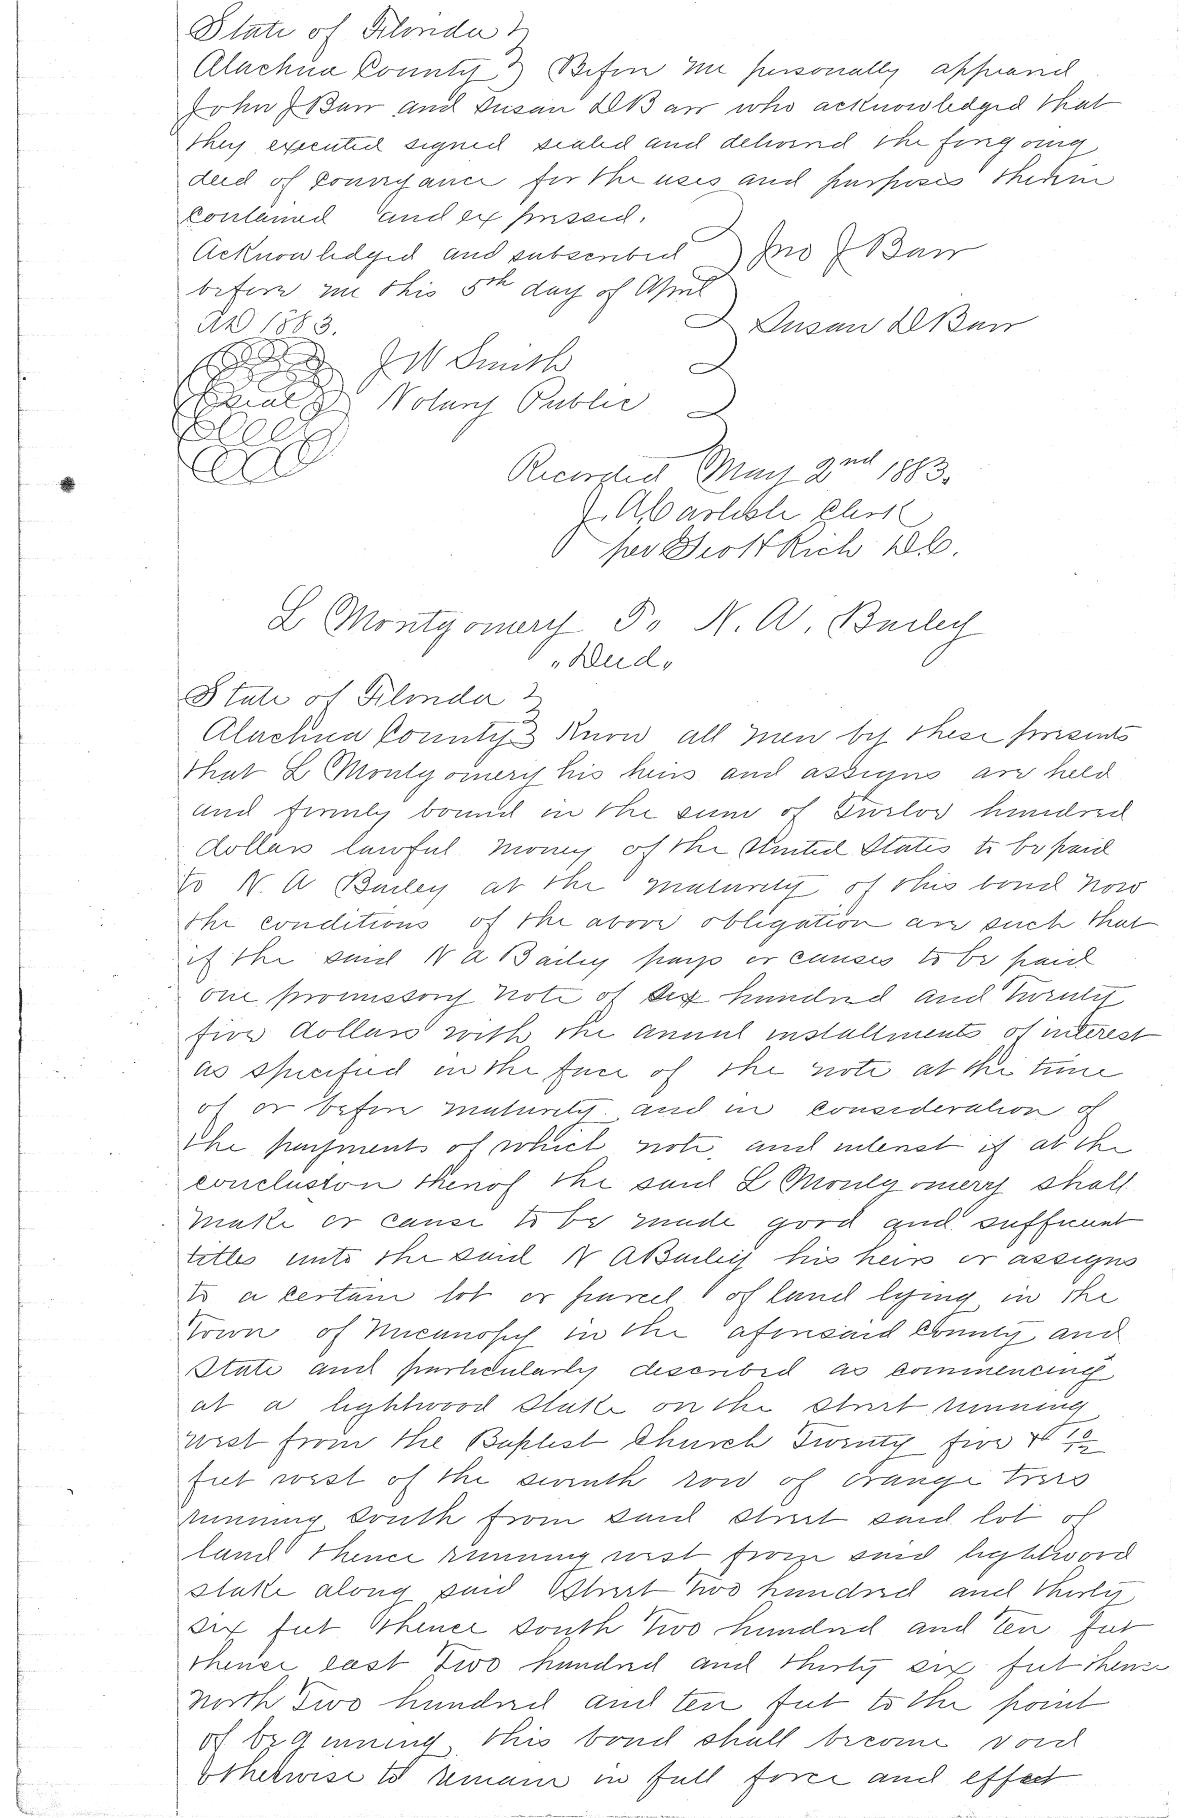 State of Florida
Alachua County Before me personally appeared
John J Barr and Susan D Barr who acknowledged that
they executed signed sealed and delivered the foregoing
deed of conveyance for the uses and purposes therein
contained and expressed.
Acknowledged and subscribed Jno J Barr
before me this 5th day of April
AD 1883. Susan D Barr
J W Smith
Seal Notary Public
Recorded May 2nd 1883.
J. A. Carlisle Clerk
per Scott Rich D.C.
L Montgomery To N. A. Bailey
"Deed"
State of Florida
Alachua County Know all men by these presents
that L Montgomery his heirs and assigns are held
and firmly bound in the sum of Twelve hundred
dollars lawful money of the United States to be paid
to N. A Bailey at the maturity of this bond now
the conditions of the above obligation are such that
if the said N A Bailey pays or causes to be paid
one promissory note of six hundred and Twenty
five dollars with the annul installments of interest
as specified in the face of the note at the time
of or before maturity and in consideration of
the payments of which note and interest if at the
conclusion thereof the said L Montgomery shall
make or cause to be made good and sufficient
titles unto the said N A Bailey his heirs or assigns
to a certain lot or parcel of land lying in the
Town of Micanopy in the aforesaid County and
State and particularly described as commencing
at a lightwood stake on the street running
west from the Baptist Church Twenty five & 10/12
feet west of the seventh row of orange trees
running south from said street said lot of
land thence running west from said lightwood
stake along said Street two hundred and thirty
six feet thence south two hundred and ten feet
thence east two hundred and thirty six feet thence
north Two hundred and ten feet to the point
of beginning, this bond shall become void
otherwise to remain in full force and effect